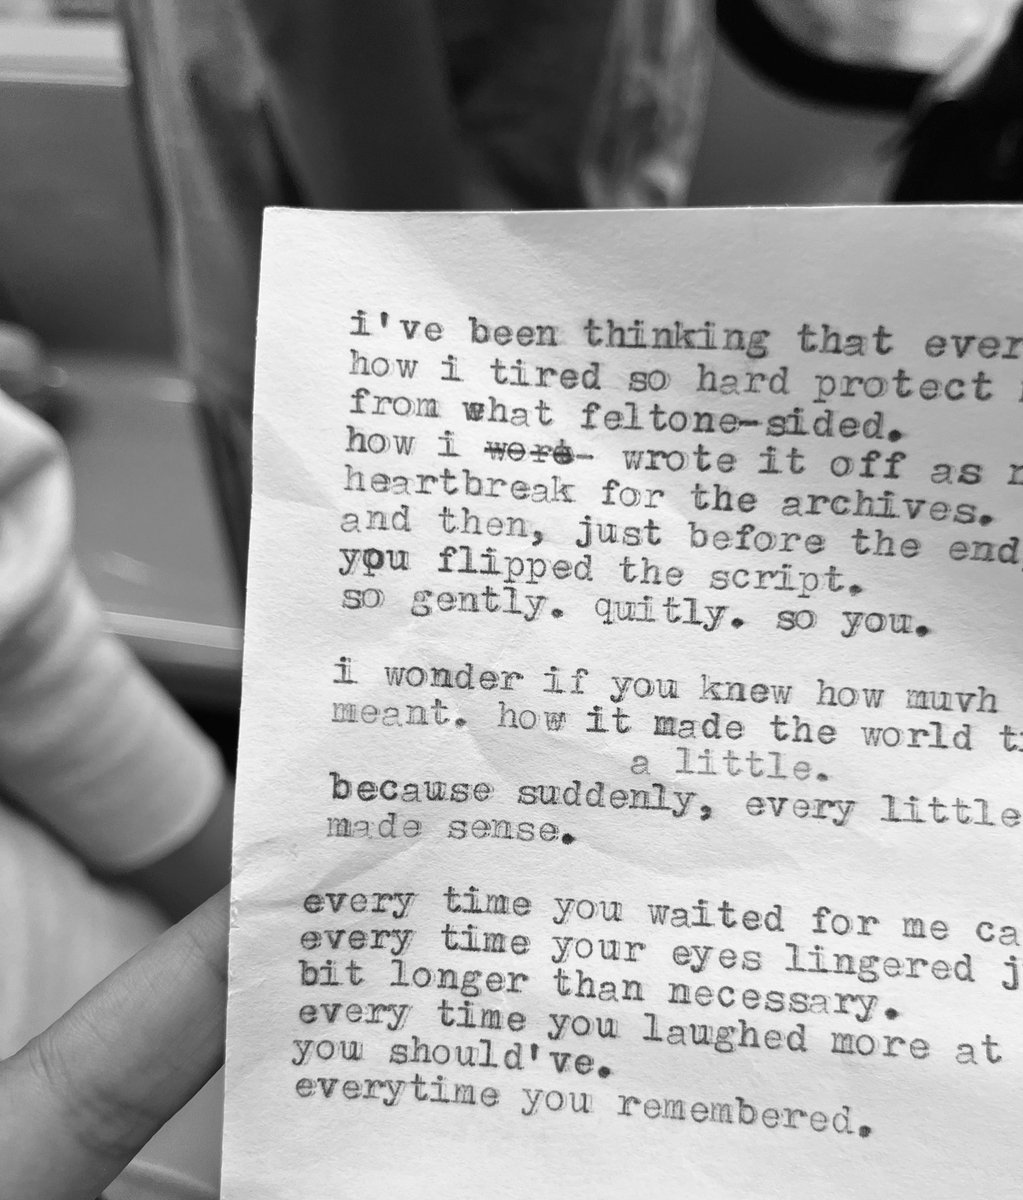 i've been thinking that ever
how i tired so hard protect
from what feltone-sided.
how i wrote it off as
heartbreak for the archives.
and then, just before the end,
you flipped the script.
so gently. quitly. so you.
i wonder if you knew how muvh
meant. how it made the world
a little.
because suddenly, every little
made sense.
every time you waited for me
every time your eyes lingered
bit longer than necessary.
every time you laughed more at
you should've.
everytime you remembered.